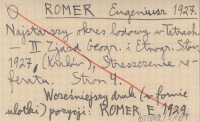 ROMER Eugeniusz 1927.
Najstarszy okres lodowy w Tatrach.
— II Zjazd Geogr. i Etnogr. Słow.
1927. (Kraków). Streszczenie re-
feratu. Stron 4.
Wcześniejszy druk (w formie
ulotki) pozycji: ROMER E. 1929.